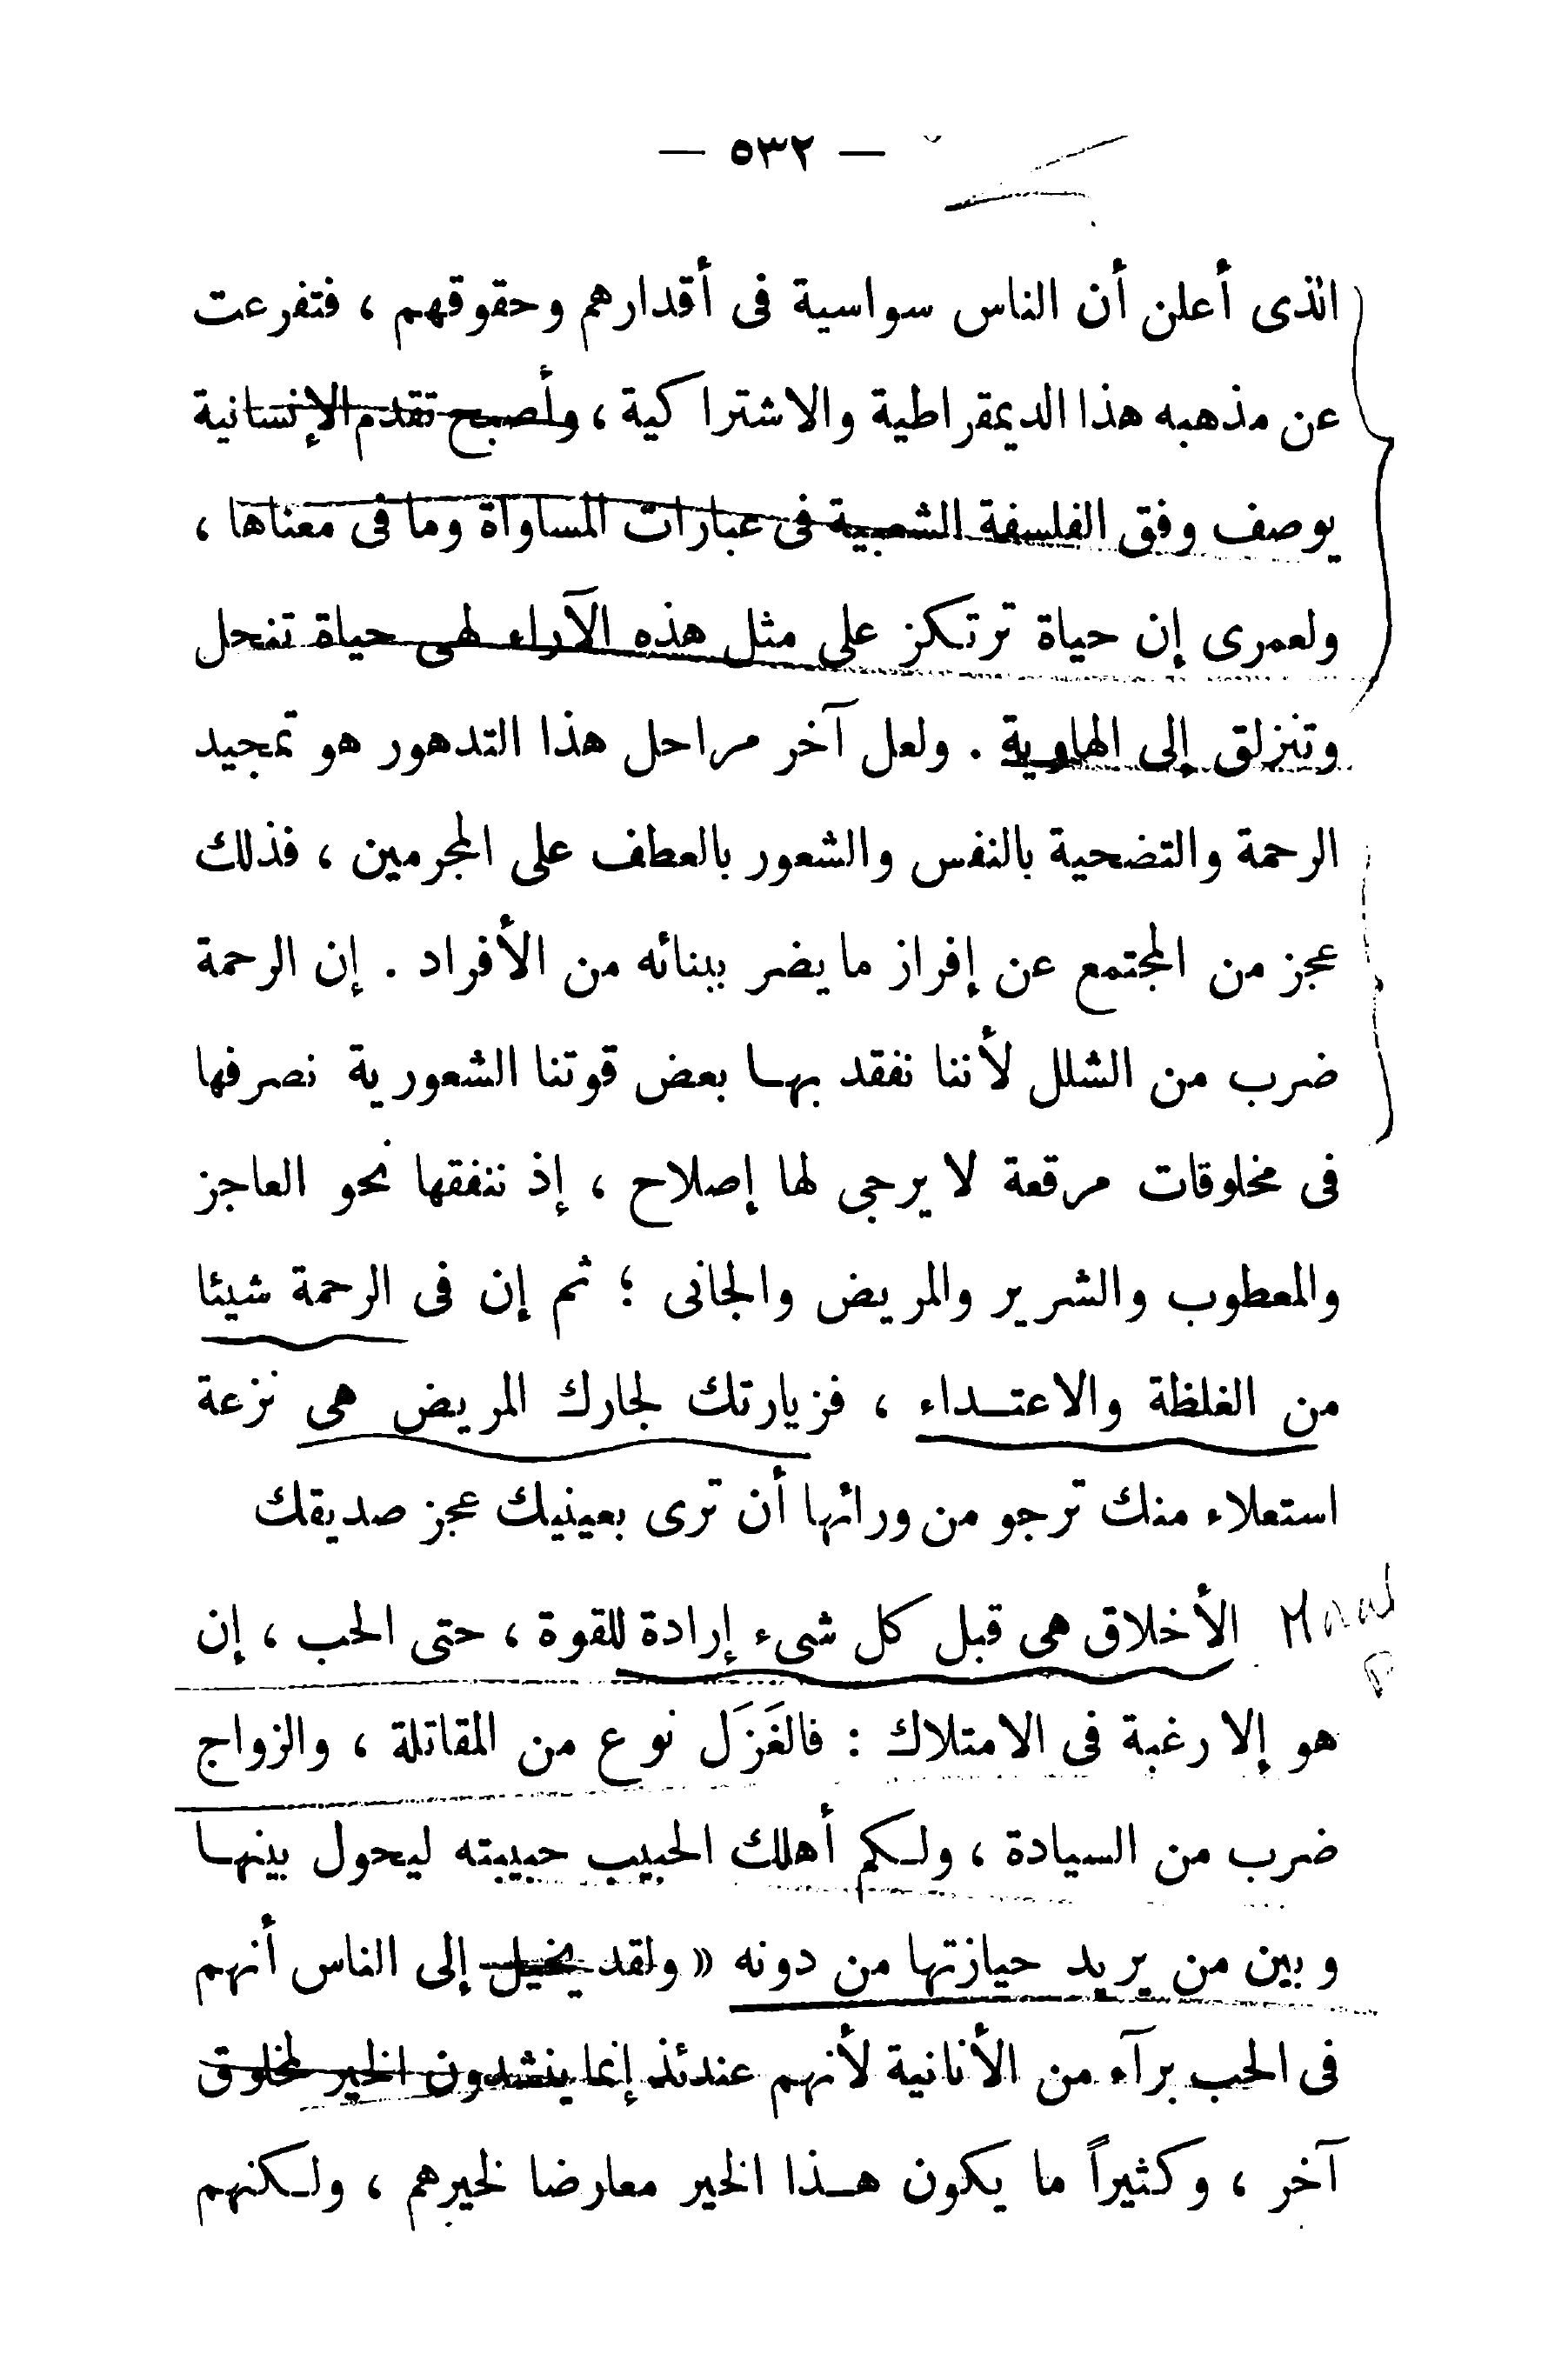 — ٥٣٢ —
الذى أعلن أن الناس سواسية فى أقدارهم وحقوقهم ، فتفرعت
عن مذهبه هذا الديمقراطية والاشتراكية ، وأصبح تقدم الإنسانية
يوصف وفق الفلسفة الشعبية فى عبارات المساواة وما فى معناها ،
ولعمرى إن حياة ترتكز على مثل هذه الآراء لهى حياة تنحل
وتنزلق إلى الهاوية . ولعل آخر مراحل هذا التدهور هو تمجيد
الرحمة والتضحية بالنفس والشعور بالعطف على المجرمين ، فذلك
عجز من المجتمع عن إفراز ما يضر ببنائه من الأفراد . إن الرحمة
ضرب من الشلل لأننا نفقد بهـا بعض قوتنا الشعورية نصرفها
فى مخلوقات مرقعة لا يرجى لها إصلاح ، إذ ننفقها نحو العاجز
والمعطوب والشرير والمريض والجانى ؛ ثم إن فى الرحمة شيئا
من الغلظة والاعتـداء ، فزيارتك لجارك المريض هى نزعة
استعلاء منك ترجو من ورائها أن ترى بعينيك عجز صديقك
الأخلاق هى قبل كل شىء إرادة للقوة ، حتى الحب ، إن
هو إلا رغبة فى الامتلاك : فالغَزَل نوع من المقاتلة ، والزواج
ضرب من السيادة ، ولـكم أهلك الحبيب حبيبته ليحول بينهـا
وبين من يريد حيازتها من دونه « ولقد يخيل إلى الناس أنهم
فى الحب برآء من الأنانية لأنهم عندئذ إنما ينشدون الخير لمخلوق
آخر ، وكثيراً ما يكون هـذا الخير معارضا لخيرهم ، ولـكنهم